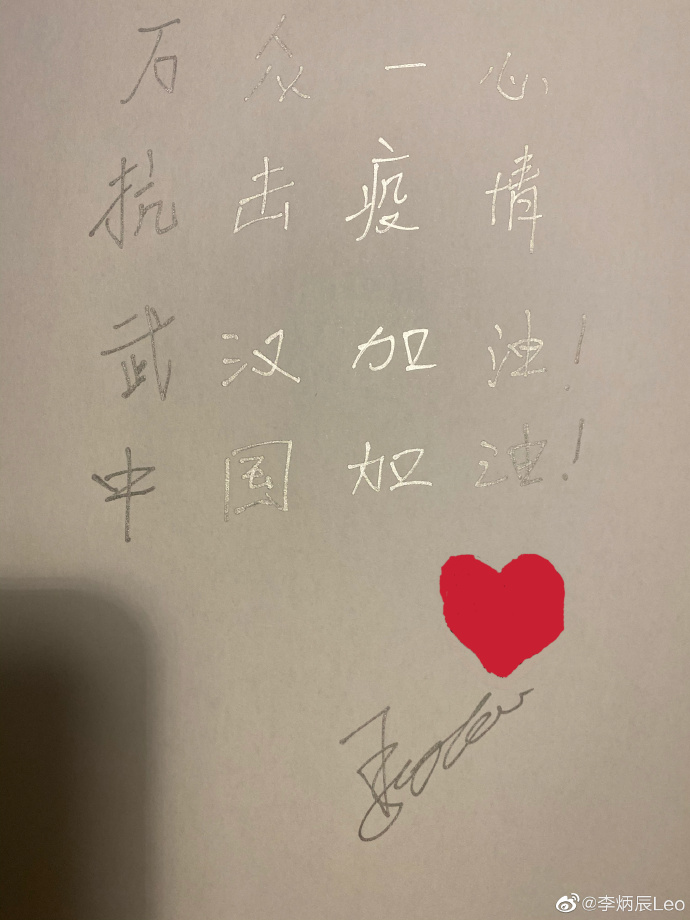 万众一心
抗击疫情
武汉加油!
中国加油!
@李炳辰Leo